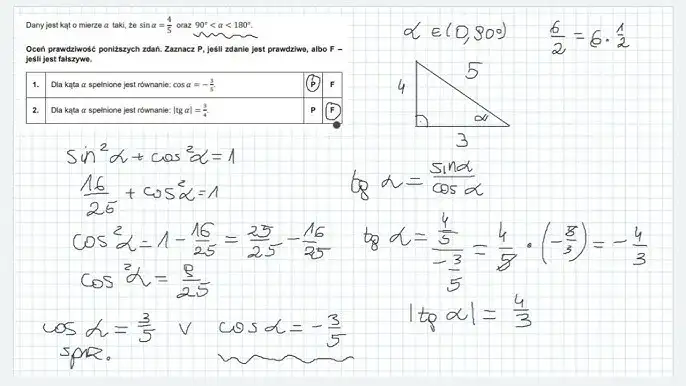 Dany jest kąt o mierze α taki, że sin α = 4/5 oraz 90° < α < 180°.
Oceń prawdziwość poniższych zdań. Zaznacz P, jeśli zdanie jest prawdziwe, albo F –
jeśli jest fałszywe.
1. Dla kąta α spełnione jest równanie: cos α = − 3/5 P F
2. Dla kąta α spełnione jest równanie: |tg α| = 3/4 P F
α ∈ (0, 90°)
6/2 = 6 · 1/2
4
5
α
3
sin²α + cos²α = 1
16/25 + cos²α = 1
cos²α = 1 − 16/25 = 25/25 − 16/25
cos²α = 9/25
cos α = 3/5 v cos α = − 3/5
spr.
tg α = sin α / cos α
tg α = 4/5 / − 3/5 = 4/5 · (− 5/3) = − 4/3
|tg α| = 4/3